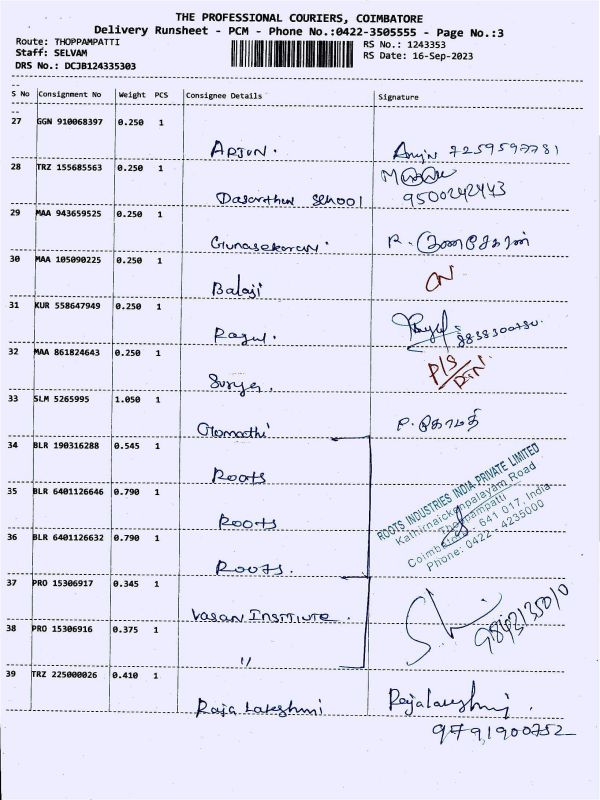 THE PROFESSIONAL COURIERS, COIMBATORE
Delivery Runsheet - PCM - Phone No.:0422-3505555 - Page No.:3
Route: THOPPAMPATTI RS No.: 1243353
Staff: SELVAM RS Date: 16-Sep-2023
DRS No.: DCJB124335303
S No Consignment No Weight PCS Consignee Details Signature
27 GGN 910068397 0.250 1
ARJUN. Arujn 7259597781
28 TRZ 155685563 0.250 1
Dasarthun School 9500242443
29 MAA 943659525 0.250 1
Gunasekaran. R. குணசேகரன்
30 MAA 105090225 0.250 1
Balaji CN
31 KUR 558647949 0.250 1
Ragul.
32 MAA 861824643 0.250 1
Surya. P/S
33 SLM 5265995 1.050 1
Gomathi P. கோமதி
34 BLR 190316288 0.545 1
Roots
35 BLR 6401126646 0.790 1
Roots
36 BLR 6401126632 0.790 1
Roots.
ROOTS INDUSTRIES INDIA PRIVATE LIMITED
Kathirnaickenpalayam Road
Thoppampatti
Coimbatore - 641 017. India
Phone: 0422 - 4235000
37 PRO 15306917 0.345 1
VASAN INSTITUTE. 9842135010
38 PRO 15306916 0.375 1
"
39 TRZ 225000026 0.410 1
Raja Lakshmi Rajalakshmi.
9791900752